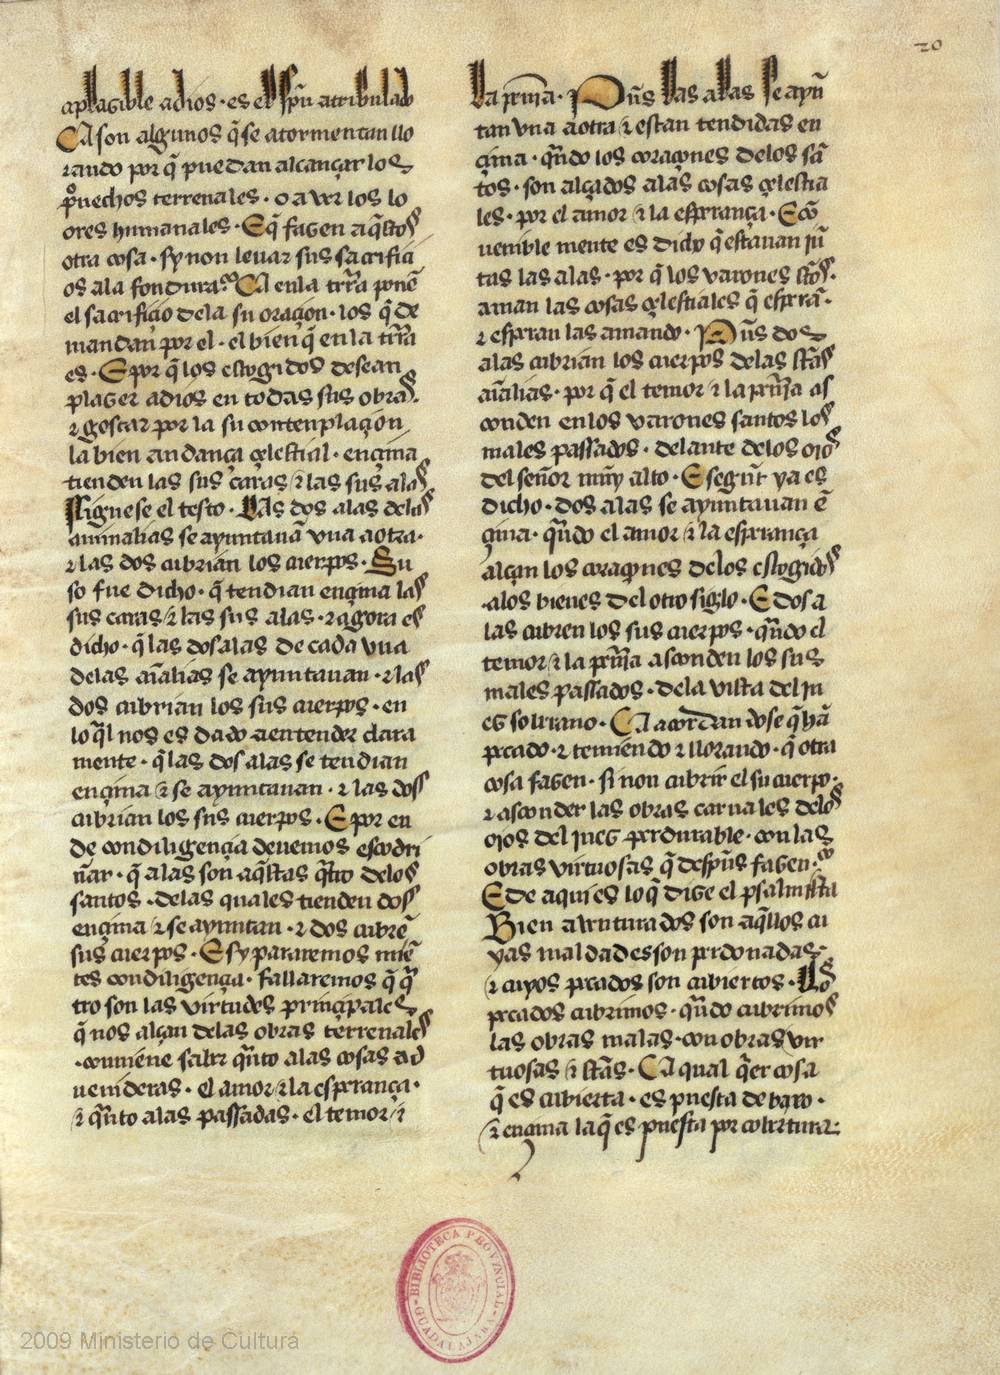 20
aplazible a dios · es el spũ atribulado
Ca son algunos q̃ se atormentan llo
rando por q̃ puedan alcançar los
puechos terrenales · o aver los lo
ores humanales · E q̃ fazen aq̃stos
otra cosa · sy non levar sus sacrifiçi
os ala fondura Ca enla trr̃a ponẽ
el sacrifiçio dela su oraçion · los q̃ de
mandan por el · el bien q̃ en la trr̃a
es · E por q̃ los escogidos desean
plazer a dios en todas sus obras ·
⁊ gostar por la su contenplaçion
la bien andança çelestial · ençima
tienden las sus caras ⁊ las sus alas
Siguese el testo · Las dos alas delas
animalias se ayuntavã una a otra ·
⁊ las dos cubrian los cuerpos · Su
so fue dicho · q̃ tendian ençima las
sus caras ⁊ las sus alas · ⁊ agora es
dicho · q̃ las dos alas de cada una
delas aĩalias se ayuntavan · ⁊ las
dos cubrian los sus cuerpos · en
lo q̃l nos es dado a entender clara
mente · q̃ las dos alas se tendian
ençima ⁊ se ayuntavan · ⁊ las dos
cubrian los sus cuerpos · E por en
de con diligençia devemos escodri
ñar · q̃ alas son aq̃stas q̃tro delos
santos · delas quales tienden dos
ençima ⁊ se ayuntan · ⁊ dos cubrẽ
sus cuerpos · E sy pararemos miẽ
tes con diligençia · fallaremos q̃ q̃
tro son las virtudes prinçipales
q̃ nos alçan delas obras terrenales
· conviene saber q̃nto alas cosas ad
venideras · el amor ⁊ la esperança ·
⁊ q̃nto alas passadas · el temor ⁊
la prmĩa · Pũs las alas se ayũ
tan una a otra ⁊ estan tendidas en
çima · q̃ndo los coraçones delos sã
tos · son alçados alas cosas çelestia
les · por el amor ⁊ la esperança · E cõ
venible mente es dicho q̃ estavan jũ
tas las alas · por q̃ los varones stõs ·
aman las cosas çelestiales q̃ esperã ·
⁊ esperan las amando · Pũs dos
alas cubrian los cuerpos delas stãs
aĩalias · por q̃ el temor ⁊ la prmĩa as
conden en los varones santos los
males passados · delante delos ojos
del señor muy alto · E segũt ya es
dicho · dos alas se ayuntavan ẽ
çima · q̃ndo el amor ⁊ la esperança
alçan los coraçones delos escogidos
· alos bienes del otro siglo · E dos a
las cubren los sus cuerpos · q̃ndo el
temor ⁊ la prmĩa asconden los sus
males passados · dela vista del ju
ez soberano · Ca acordandose q̃ hã
pecado · ⁊ temiendo ⁊ llorando · q̃ otra
cosa fazen · si non cubrir el su cuerpo ·
⁊ asconder las obras carnales delos
ojos del juez perdurable · con las
obras virtuosas q̃ despũs fazen ·
E de aqui es lo q̃ dize el psalmista
Bien aventurados son aq̃llos cu
yas maldades son perdonadas ·
⁊ cuyos pecados son cubiertos · Los
pecados cubrimos · q̃ndo cubrimos
las obras malas · con obras vir
tuosas ⁊ stãs · Ca qual q̃er cosa
q̃ es cubierta · es puesta debaxo ·
⁊ ençima la q̃ es puesta por cobertura
BIBLIOTECA PROVINCIAL
GUADALAJARA
2009 Ministerio de Cultura